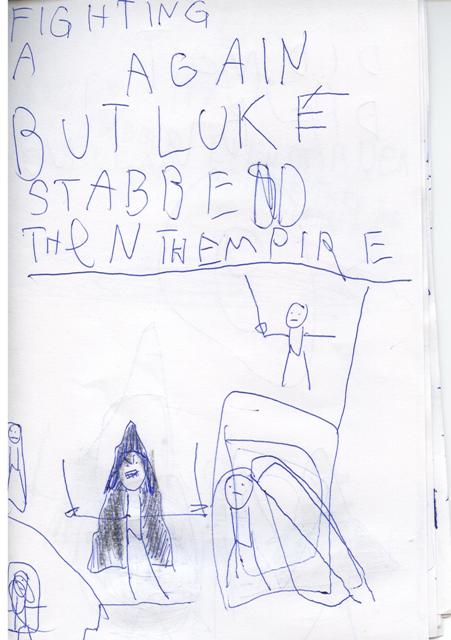 FIGHTING
A AGAIN
BUT LUKE
STABBEND
THEN THEMPIRE